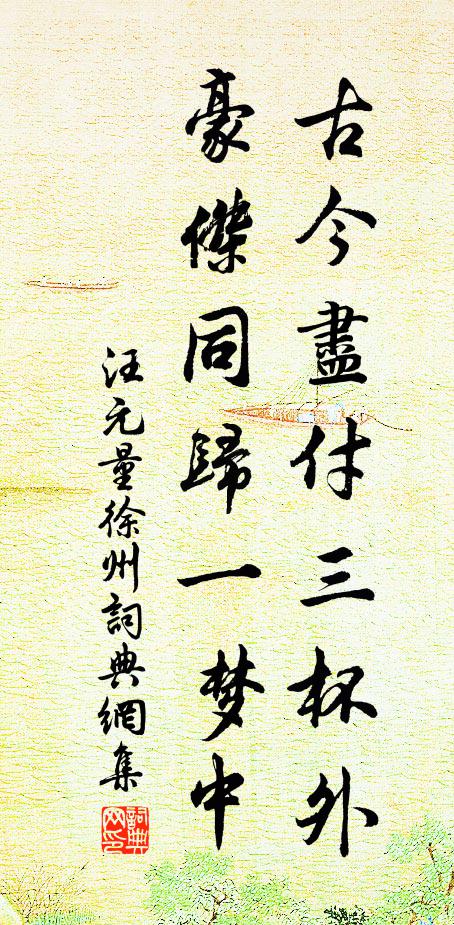 古今盡付三杯外
豪傑同歸一梦中
汪元量徐州詞典網集
詞典网印